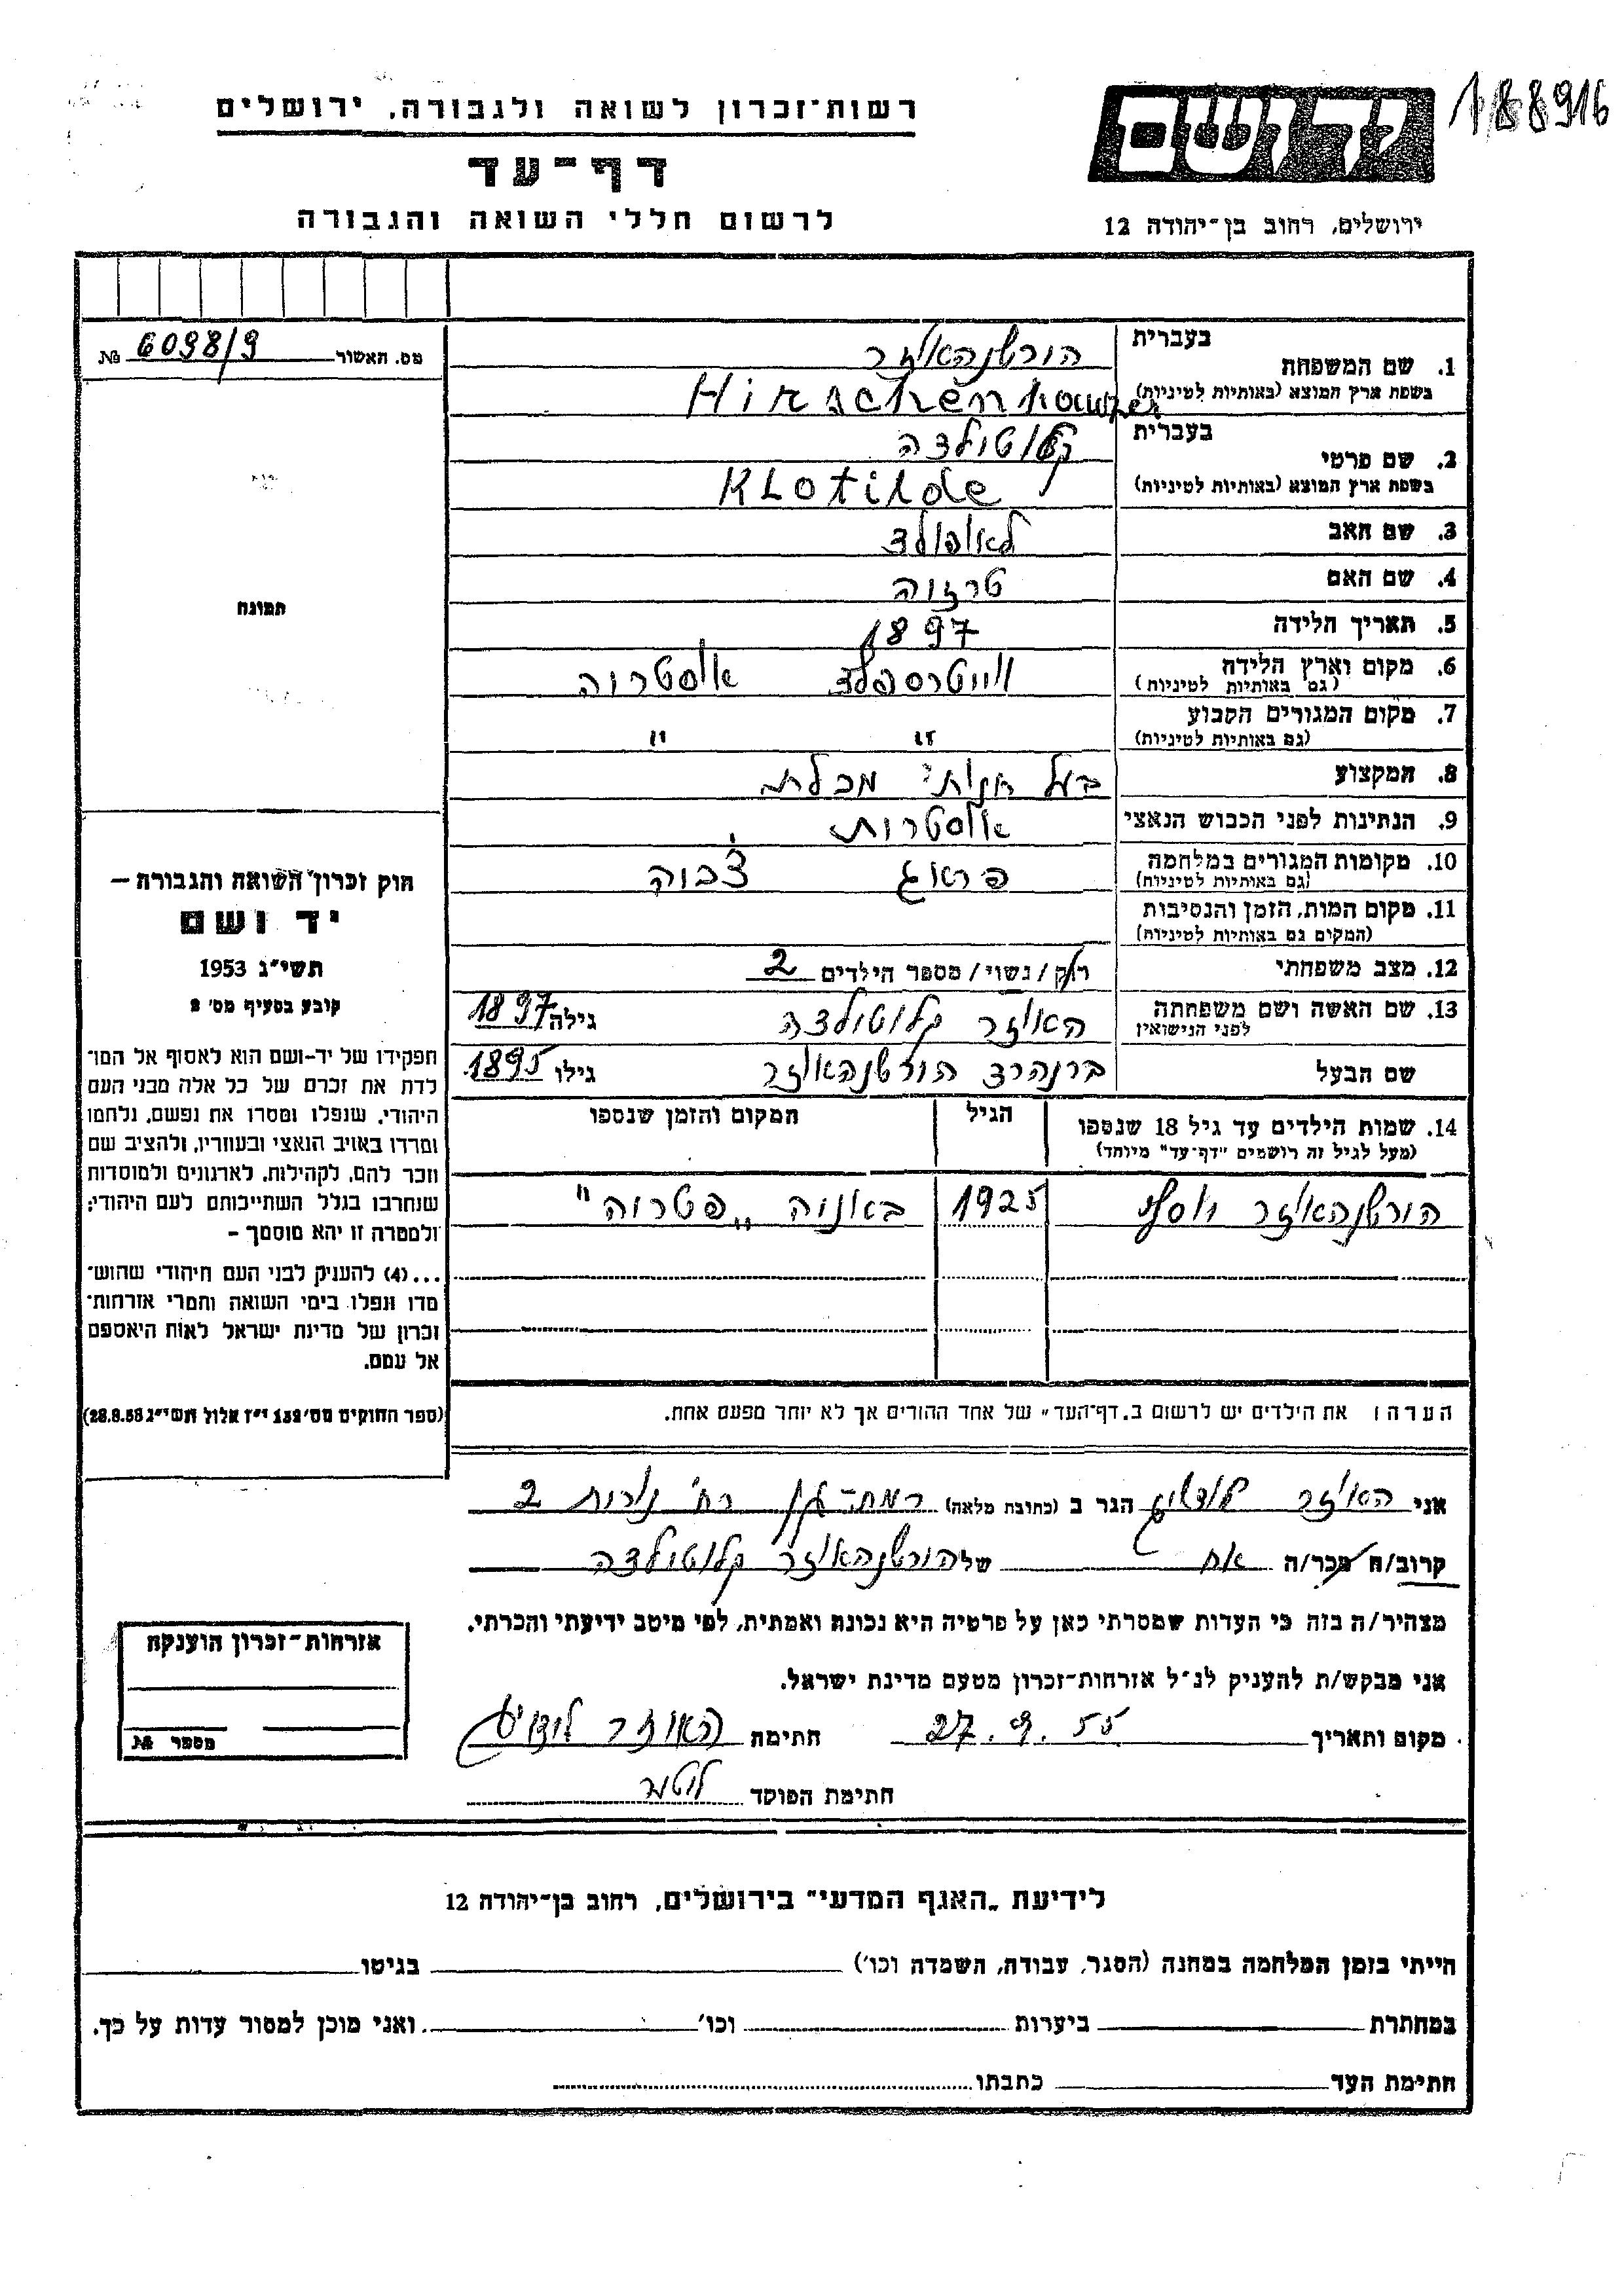 188916
יד ושם
ירושלים, רחוב בן-יהודה 12
רשות-זכרון לשואה ולגבורה, ירושלים
דף-עד
לרשום חללי השואה והגבורה
מס. האשור № 6098/9
בעברית
1. שם המשפחה הירשנהאוזר
בשפת ארץ המוצא (באותיות לטיניות) Hirschenhauser
בעברית קלוטילדה
2. שם פרטי
בשפת ארץ המוצא (באותיות לטיניות) Klotilde
3. שם האב לאופולד
4. שם האם טרזיה
5. תאריך הלידה 1897
6. מקום וארץ הלידה ווייטרספלד אוסטריה
(גם באותיות לטיניות)
7. מקום המגורים הקבוע " "
(גם באותיות לטיניות)
8. המקצוע בעל חנות מכלת
9. הנתינות לפני הכבוש הנאצי אוסטרית
10. מקומות המגורים במלחמה פראג צ'כיה
(גם באותיות לטיניות)
11. מקום המות, הזמן והנסיבות
(המקום גם באותיות לטיניות)
12. מצב משפחתי רוק/נשוי/מספר הילדים 2
13. שם האשה ושם משפחתה האוזר קלוטילדה גילה 1897
לפני הנישואין
שם הבעל ברנהרד הירשנהאוזר גילו 1895
14. שמות הילדים עד גיל 18 שנספו הגיל המקום והזמן שנספו
(מעל לגיל זה רושמים "דף-עד" מיוחד)
הירשנהאוזר יוסף 1925 באניה „פטריה"
הערה: את הילדים יש לרשום ב„דף-העד" של אחד ההורים אך לא יותר מפעם אחת.
תמונה
חוק זכרון השואה והגבורה —
יד ושם
תשי"ג 1953
קובע בסעיף מס' 2
תפקידו של יד-ושם הוא לאסוף אל המו-
לדת את זכרם של כל אלה מבני העם
היהודי, שנפלו ומסרו את נפשם, נלחמו
ומרדו באויב הנאצי ובעוזריו, ולהציב שם
וזכר להם, לקהילות, לארגונים ולמוסדות
שנחרבו בגלל השתייכותם לעם היהודי;
ולמטרה זו יהא מוסמך –
...(4) להעניק לבני העם היהודי שהוש-
מדו ונפלו בימי השואה והמרי אזרחות-
זכרון של מדינת ישראל לאות היאספם
אל עמם.
(ספר החוקים מס' 132 י"ז אלול תשי"ג 28.8.53)
אני האוזר לודויג הגר ב (כתובת מלאה) רמת-גן רח' 2
קרוב/ה מכר/ה אח של הירשנהאוזר קלוטילדה
מצהיר/ה בזה כי העדות שמסרתי כאן על פרטיה היא נכונה ואמתית, לפי מיטב ידיעתי והכרתי.
אני מבקש/ת להעניק לנ"ל אזרחות-זכרון מטעם מדינת ישראל.
מקום ותאריך 27.9.55 חתימה האוזר לודויג
חתימת הפוקד
אזרחות-זכרון הוענקה
מספר №
לידיעת „האגף המדעי" בירושלים, רחוב בן-יהודה 12
הייתי בזמן המלחמה במחנה (הסגר, עבודה, השמדה וכו') בגיטו
במחתרת ביערות וכו' ואני מוכן למסור עדות על כך.
חתימת העד כתבתו